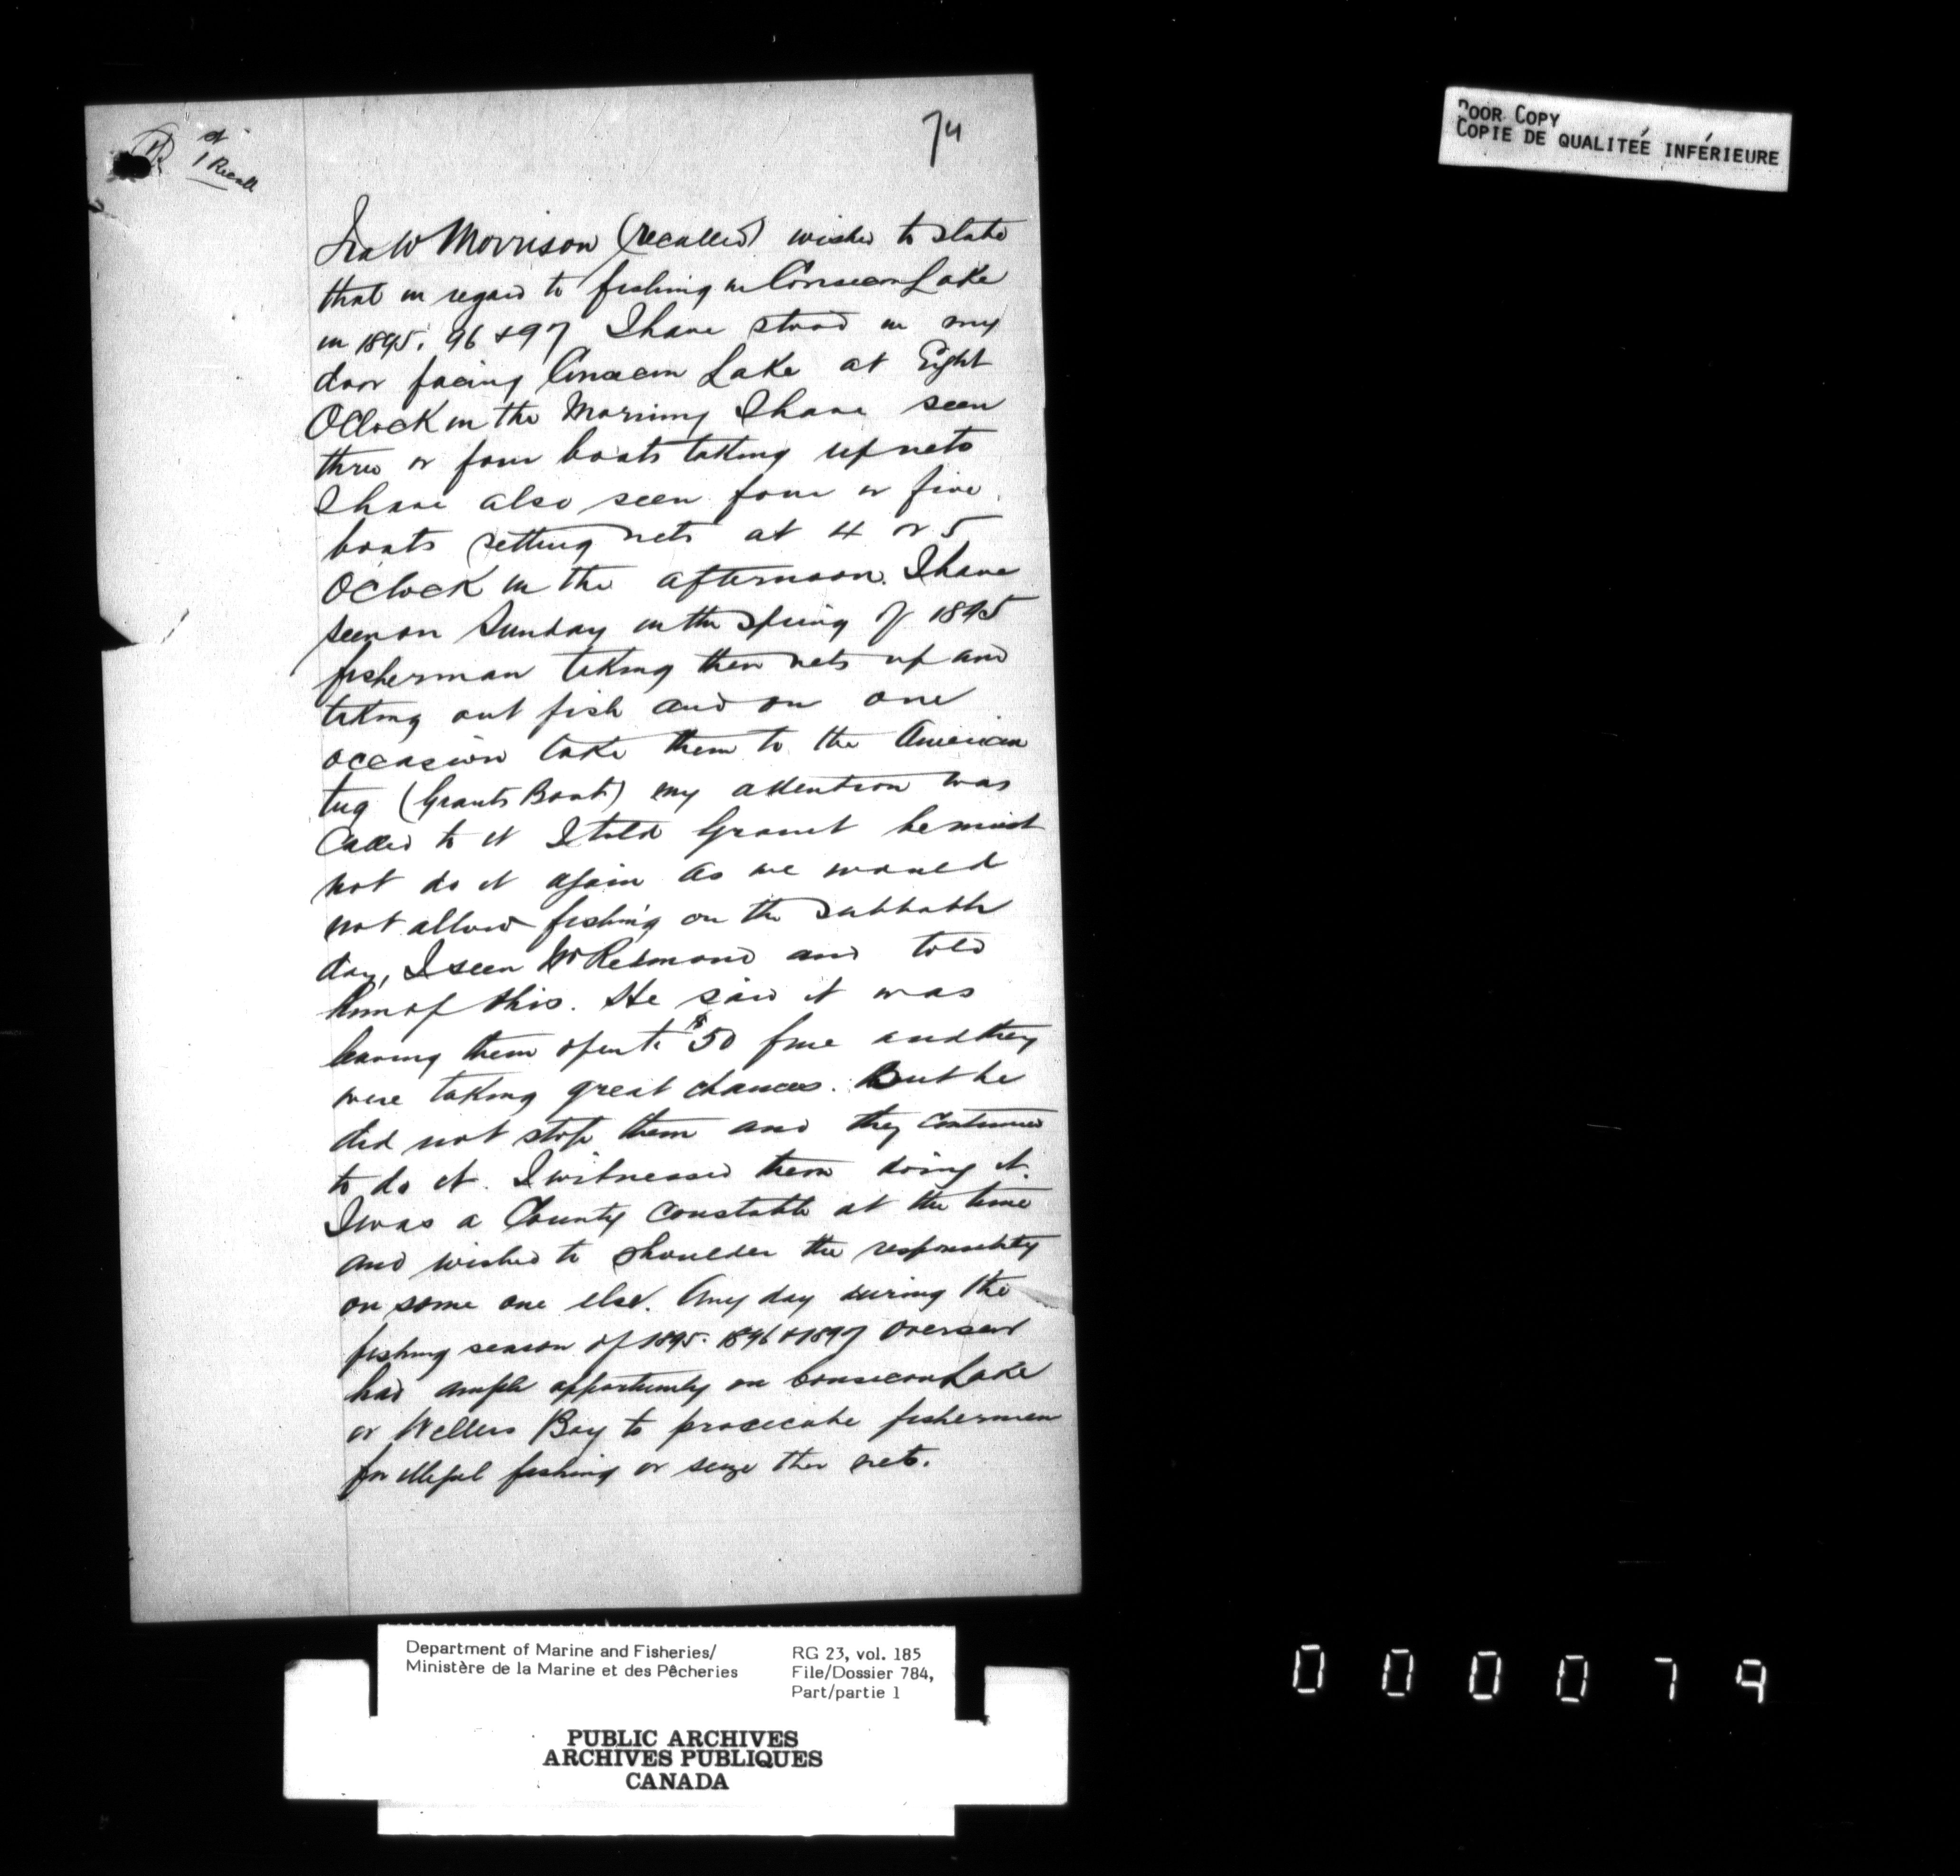 74
1st Recall
Ira W Morrison (recalled) wishes to state
that in regard to fishing in Consecon Lake
in 1895, 96 & 97 I have stood in my
door facing Consecon Lake at Eight
OClock in the Morning I have seen
three or four boats taking up nets
I have also seen four or five
boats setting nets at 4 or 5
OClock in the afternoon. I have
seen on Sunday in the Spring of 1895
fisherman taking their nets up and
taking out fish and on one
occasion take them to the American
tug (Grants Boat) my attention was
Called to it I told Grant he must
not do it again as we would
not allow fishing on the Sabbath
day, I seen Mr Redmond and told
him of this. He said it was
leaving them open to $50 fine and they
were taking great chances. But he
did not stop them and they continued
to do it. I witnessed them doing it.
I was a County Constable at the time
and wished to shoulder the responsibility
on some one else. Any day during the
fishing season of 1895. 1896 & 1897 Overseer
had ample opportunity on Consecon Lake
or Wellers Bay to prosecute fishermen
for illegal fishing or seize their nets.
POOR COPY
COPIE DE QUALITEÉ INFÉRIEURE
Department of Marine and Fisheries/
Ministère de la Marine et des Pêcheries
RG 23, vol. 185
File/Dossier 784,
Part/partie 1
PUBLIC ARCHIVES
ARCHIVES PUBLIQUES
CANADA
000079